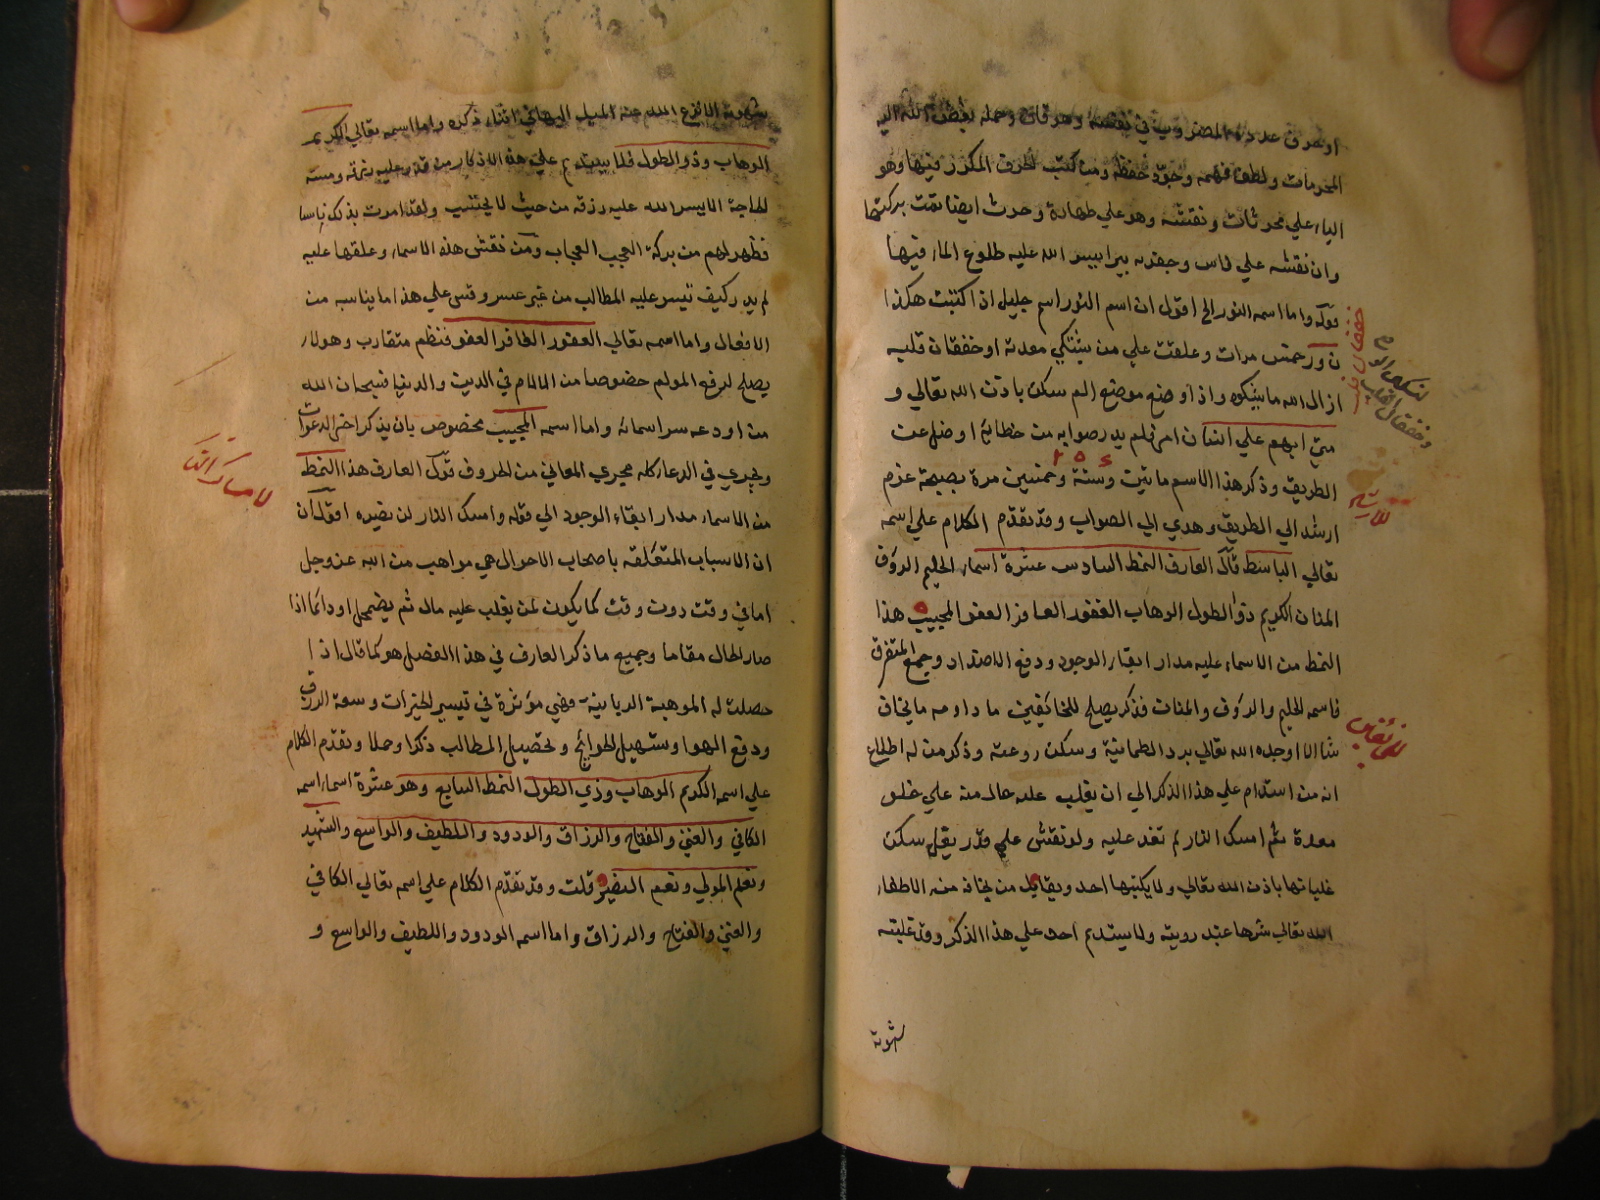 او حرف عدده المضروب في نفسه وهو قات وحمله يقبض الله اليه
المحرمات ولطف فهمه وجود حفظه ومتا كتب الحرف المكرر فيها وهو
الياء علي محرثات ونقشه وهو علي طهارة وحرث ايضا نمت بركتها
وان نقشه علي فاس وحفر به بيرا ييسر الله عليه طلوع الماء فيها
قوله واما اسمه النور الخ اقول ان اسم النور اسم جليل اذا كتبت هكذا
ن و ر خمس مرات وعلقت علي من يشتكي معدته او خفقان قلبه
ازال الله ما يشكوه واذا وضع موضع الم سكن باذن الله تعالي و
متي ابهم علي انسان امر فلم يدر صوابه من خطائه او ضل عن
الطريق وذكر هذا الاسم مايتين وستة وخمسين مرة بصيحة عزم
٢٥٦
ارشد الي الطريق وهدي الي الصواب وقد تقدم الكلام علي اسمه
تعالي الباسط قال العارف النمط السادس عشرة اسماء الحليم الروف
المنان الكريم ذو الطول الوهاب الغفور الغافر العفو المجيب هذا
النمط من الاسماء عليه مدار ابقاء الوجود ودفع الاضداد وجمع المتفرق
فاسمه الحليم والروف والمنان فذكر يصلح للخائفين ما داومه ما يخاف
شا الا اوجده الله تعالي برد الطمانينة وسكن روعته وذكر من له اطلاع
انه من استدام علي هذا الذكر الي ان يغلب عليه حال منه علي خلو
معدة ثم امسك النار لم تعد عليه ولو تنفس علي قدر يغلي سكن
غليانها باذن الله تعالي ولا يكتبها احد ويقابل من يخاف منه الا اطفاء
الله تعالي شرها عند رويته ولا يستديم احد علي هذا الذكر وقد غلبته
شهوة
خفقان قلب
لتسكين الالم
وخفقان القلب
للخائفين
شهوة الا نزع الله عنه الميل اثناء ذكره واما اسمه تعالي الكريم
الوهاب وذو الطول فلا يستديم علي هذه الاذكار من قدر عليه رزقه ومسته
الحاجة الا يسر الله عليه رزقه من حيث لا يحتسب ولقد امرت بذلك ناسا
فظهر لهم من بركة العجب العجاب ومن نقش هذه الاسماء وعلقها عليه
لم يدر كيف تيسر عليه المطالب من غير عسر وقس علي هذا ما يناسبه من
الافعال واما اسمه تعالي الغفور الغافر العفو فنظم متقارب وهو لا
يصلح لدفع المولم خصوصا من الالام في الدين والدنيا فسبحان الله
من اودعه سر اسمائه واما اسمه المجيب مخصوص بان يذكر اخر الدعوات
ويجري في الدعاء كله مجري المعاني من الحروف قوله العارف هذا النمط
من الاسماء مدار ابقاء الوجود الي قوله وامسك النار لن تضره اقول ان
ان الاسباب المتعلقه باصحاب الاحوال هي مواهب من الله عز وجل
اما في وقت دون وقت كما يكون لمن يغلب عليه حال ثم يضمحل او دائما اذا
صار الحال مقاما وجميع ما ذكر العارف في هذا الفصل هو كما قال اذا
حصلت له الموهبة الربانية فهي مؤثرة في تيسير الخيرات وسعة الرزق
ودفع الهوا وتسهيل الحوائج وتحصيل المطالب ذكرا وحملا وتقدم الكلام
علي اسمه الكريم الوهاب وذي الطول النمط السابع وهو عشرة اسماء اسمه
الكافي والغني والفتاح والرزاق والودود واللطيف والواسع والشهيد
ونعم المولي ونعم النصير قلت وقد تقدم الكلام علي اسمه تعالي الكافي
والغني والفتاح والرزاق واما اسمه الودود واللطيف والواسع و